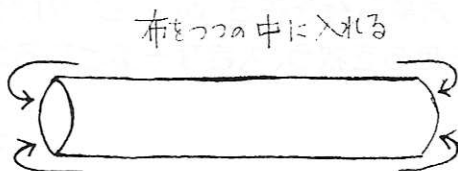 布をつつの中に入れる